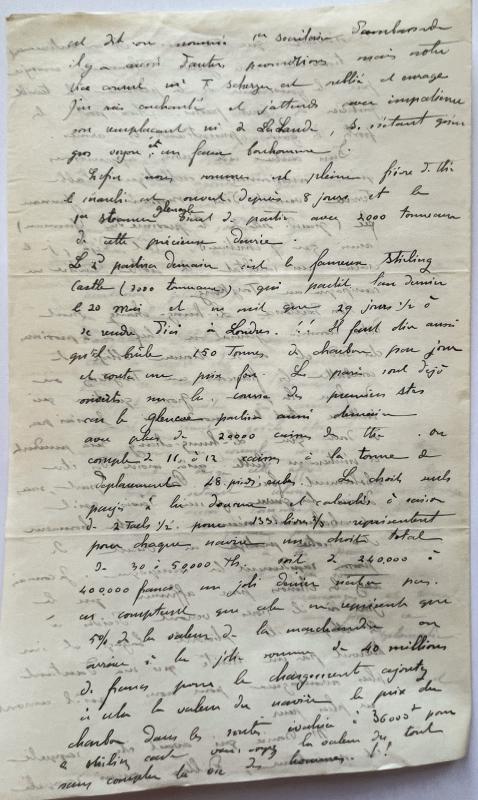 est dit on nommé 1er secrétaire d'ambassade
il y a aussi d'autres promotions mais notre
vice consul mr Scherzer est oublié et enrage
J'en suis enchanté et j'attends avec impatience
son remplaçant mr de LaLande,
gros voyou et un faux bonhomme
Enfin nous sommes en pleine fièvre de thé
le marché est ouvert depuis 8 jours et le
1er steamer glencoe vient de partir avec 2000 tonneaux
de cette précieuse denrée.
Le 2d partira demain soit le fameux stirling
Castle (3000 tonneaux) qui partit l'an dernier
le 20 mai et ne mit que 29 jours 1/2 à
se rendre d'ici à Londres. !! Il faut dire aussi
qu'il brûle 150 Tonnes de charbon par jour
et coûte un prix fou. Les paris sont déjà
ouverts sur la course des premiers strs
car le glencoe partira aussi demain
avec plus de 20000 caisses de thé. on
compte de 11 à 12 caisses à la tonne de
déplacement 48 pieds cubes. Les droits seuls
payés à la douane et calculés à raison
de 2 Taels 1/2 pour 133 livres 1/3 représentent
pour chaque navire un droit total
de 30 à 50,000 Tls soit de 240,000 à
400,000 francs un joli denier n'est ce pas.
en comptant que cela ne représente que
5% de la valeur de la marchandise on
arrive à la jolie somme de 40 millions
de francs pour le chargement ajoutez
à cela la valeur du navire le prix du
charbon dans les soutes, évalué à 36000f pour
le stirling castle vous voyez la valeur du tout
sans compter la vie des hommes.. !!